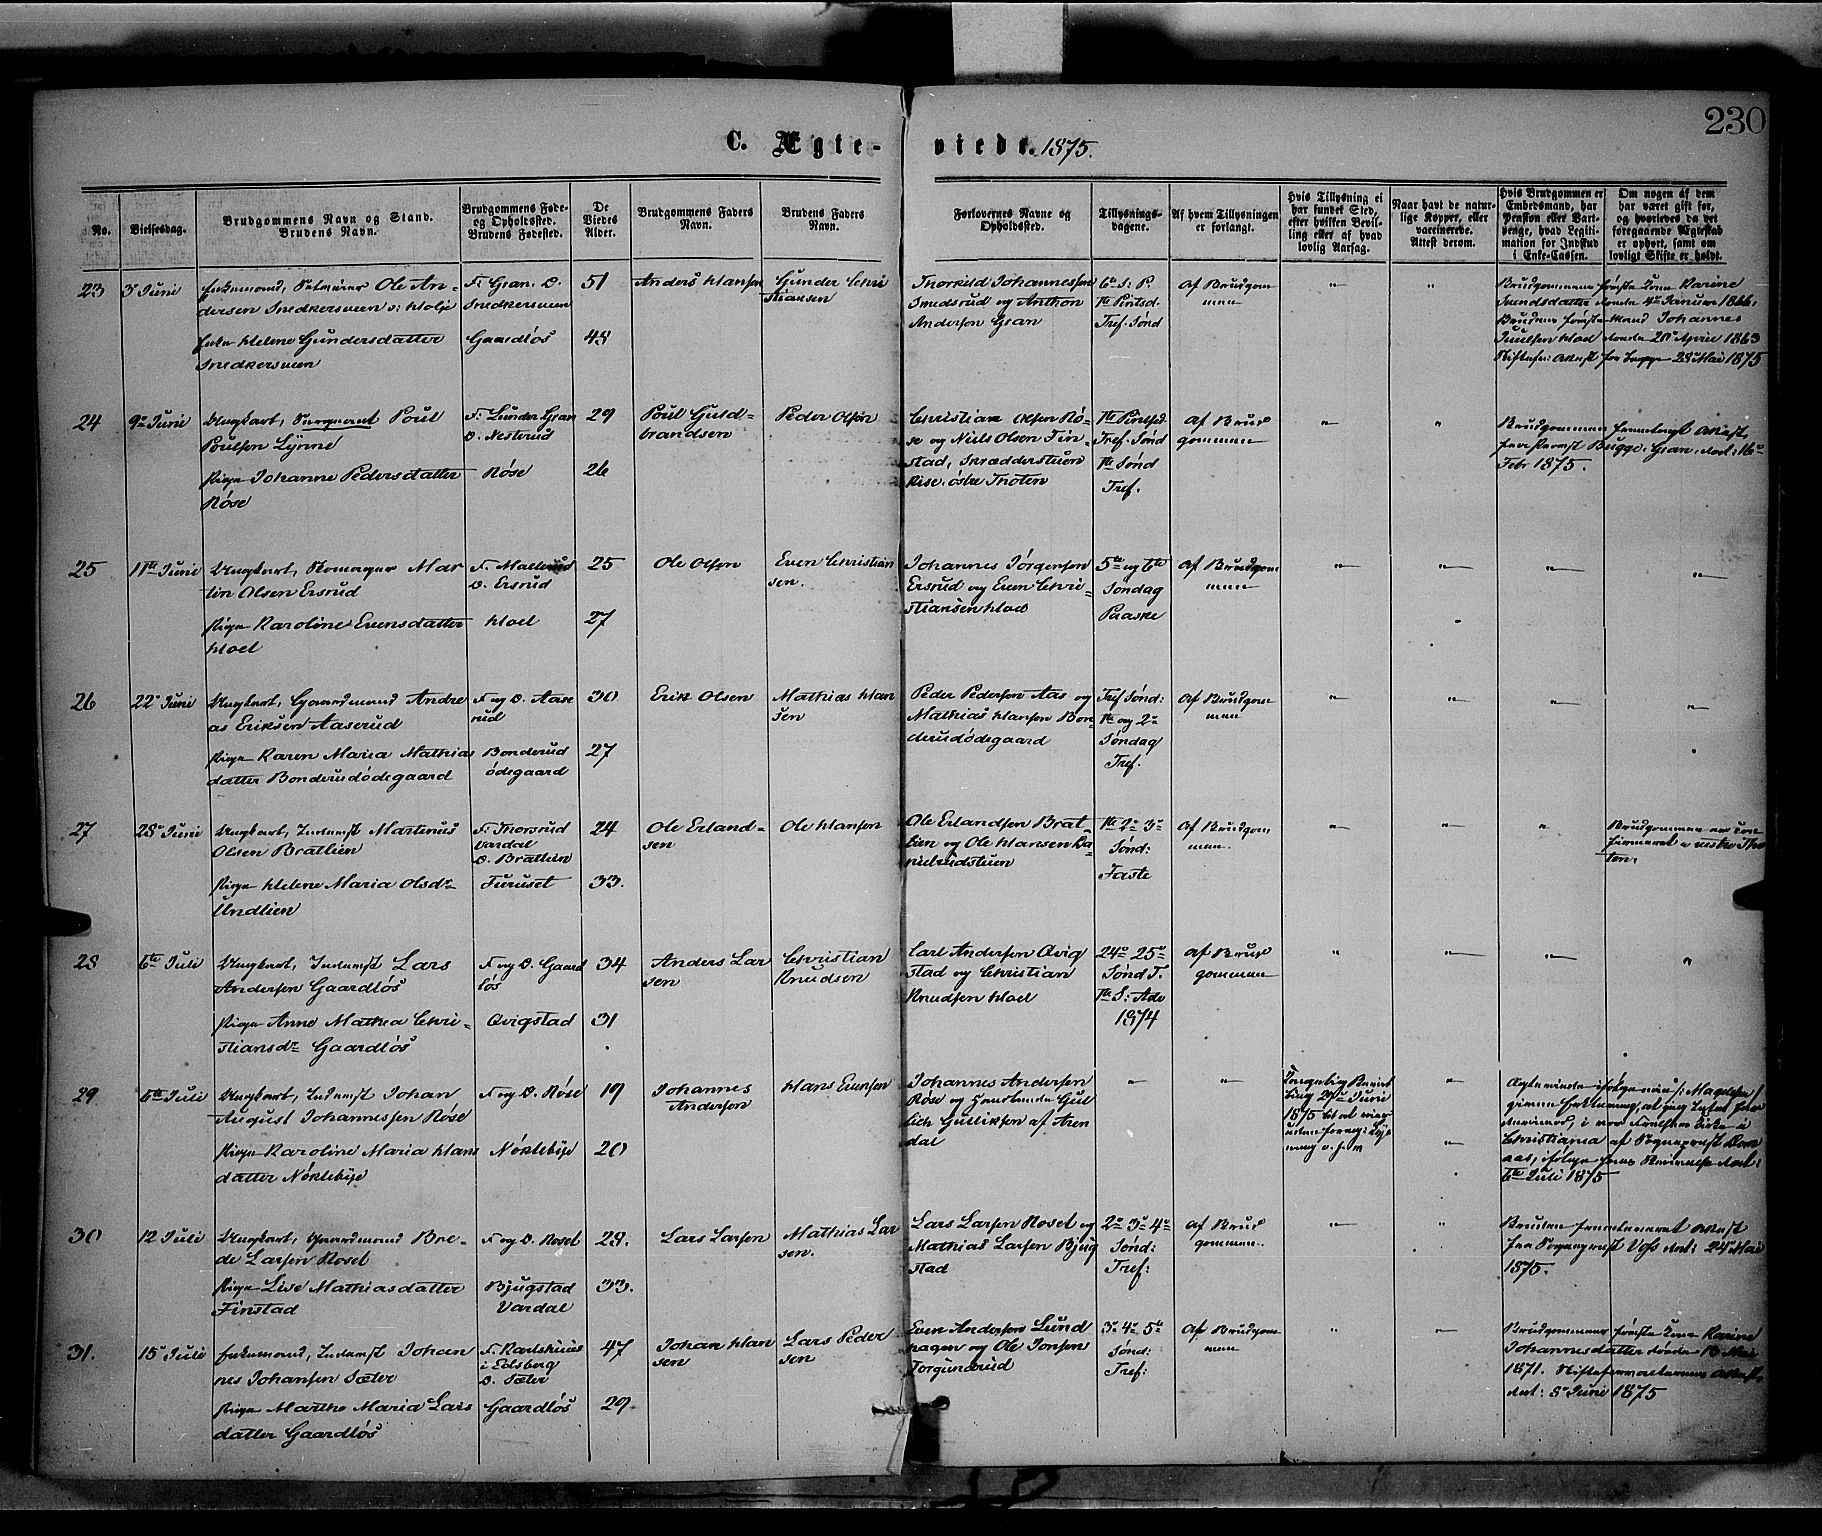 230
C. Ægteviede. 1875.
No.
Vielsesdag.
Brudgommens Navn og Stand.
Brudens Navn.
Brudgommens Føde-
og Opholdssted.
Brudens Fødested.
De
Viedes
Alder.
Brudgommens Faders
Navn.
Brudens Faders
Navn.
Forlovernes Navne og
Opholdssted.
Tillysnings-
dagene.
Af hvem Tillysningen
er forlangt.
Hvis Tillysning ei
har fundet Sted,
efter hvilken Bevil-
ling eller af hvad
lovlig Aarsag.
Naar havt de natur-
lige Kopper, eller
vaccinerede.
Attest derom.
Hvis Brudgommen er
Embedsmand, har
Pension eller Vart-
penge, hvad Legiti-
mation for Indskud
i Enke-Cassen.
Om nogen af dem
har været gift før,
og hvorledes da det
foregaaende Ægteskab
er ophørt, samt om
lovligt Skifte er holdt.
23
3 Juni
Enkemand, Ole An-
dersen Snedkersveen
Enke Helene Gundersdatter
Snedkersveen
F: Gran. O.
Snedkersveen
Gaardløs
51
48
Anders Hansen
Gunder Chri
stiansen
Thorkild Johannessen
Smedsrud og Anthon
Andersen Gran
6te S: P.
1te Pintsd.
Tref. Sønd
Af Brudgom
men
Brudgommens første Kone Karine
døde 4de Januar 1866.
Brudens første Mand Johannes
døde 20 April 1863
28 Mai 1875
24
9de Juni
Ungkarl, Sergeant Poul
Poulsen Lynne
Pige Johanne Pedersdatter
Røse
F: Lunder Gran
O. Nesterud
Røse
29
26
Poul Guld-
brandsen
Peder Olsen
Christian Olsen Rø-
se og Niels Olsen Fin-
stad, Skrædderstuen
Rise østre Thoten
1te Pintsed.
Tref. Sønd
1te Sønd
Tref.
Af Brud
gommen
Brudgommen fremlagt Attest
fra Provst Bugge, Gran, dat: 16de
Febr 1875.
25
11te Juni
Ungkarl, Skomager Mar
tin Olsen Ersrud
Pige Karoline Evensdatter
Hoel
F: Mallerud
O. Ersrud
Hoel
25
27
Ole Olsen
Even Christian
sen.
Johannes Jørgensen
Ersrud og Even Chri-
stiansen Hoel
5te og 6te
Søndag
Paaske
Af Brudgom
men
26
22de Juni
Ungkarl, Gaardmand Andre
as Eriksen Aaserud
Pige Karen Maria Mathias
datter Bonderudødegaard
F og O. Aase
rud
Bonderud
ødegaard
30
27
Erik Olsen
Mathias Han
sen
Peder Pedersen Aas og
Mathias Hansen Bon-
derudødegaard
Tref Sønd:
1te og 2de
Søndag
Tref.
Af Brudgom
men
27
28de Juni
Ungkarl, Inderst Martinus
Olsen Bratlien
Pige Helene Maria Olsdr
Undlien
F: Thorsrud
Vardal
O. Bratlien
Furuset
24
33.
Ole Erland-
sen
Ole Hansen
Ole Erlandsen Brat-
lien og Ole Hansen
1te 2de 3de
Sønd:
Faste
Af Brudgom
men.
Brudgommen er con
firmeret i vestre Tho
ten.
28
6te Juli
Ungkarl, Inderst Lars
Andersen Gaardløs
Pige Anne Mathea Chri-
stiansdr Gaardløs
F og O. Gaard
løs
Qvigstad
34
31
Anders Lar
sen
Christian
Knudsen
Carl Andersen Qvig
stad og Christian
Knudsen Hoel
24de 25de
Sønd T.
1te S: Adv
1874
Af Brud
gommen
29
6te Juli
Ungkarl, Inderst Johan
August Johannessen Røse
Pige Karoline Maria Hans
datter Nøklebye
F og O. Røse
Nøklebye
19
20
Johannes
Andersen
Hans Evensen
Johannes Andersen
Røse og Gul
lich Gulliksen af Aren
dal
Kongelig Bevil
ling 29de Juni
1875
Christiania af Sogneprest
6te Juli 1875
30
12 Juli
Ungkarl, Gaardmand Bre-
de Larsen Roset
Pige Lise Mathiasdatter
Finstad
F og O. Roset
Bjugstad
Vardal
28.
33.
Lars Larsen
Mathias Lar
sen.
Lars Larsen Roset og
Mathias Larsen Bjug
stad
2de 3de 4de
Sønd:
Tref:
Af Brud
gommen.
Bruden fremleveret Attest
fra Sogneprest Voss dat: 24 Mai
1875.
31.
15 Juli
Enkemand, Inderst Johan
nes Johansen Sæter
Pige Marthe Maria Lars
datter Gaardløs
F: Karlshuus
i Edsberg
O. Sæter
Gaardløs
47
29
Johan Han
sen
Lars Peder
sen
Even Andersen Lund
hagen og Ole Jonsen
Torgunrud
3de 4de 5te
Sønd:
Tref:
Af Brudgom
men
Brudgommens første Kone Karine
Johannesdatter døde 13 Mai
1871. Skifteforvalterens Attest
dat: 8de Juni 1875